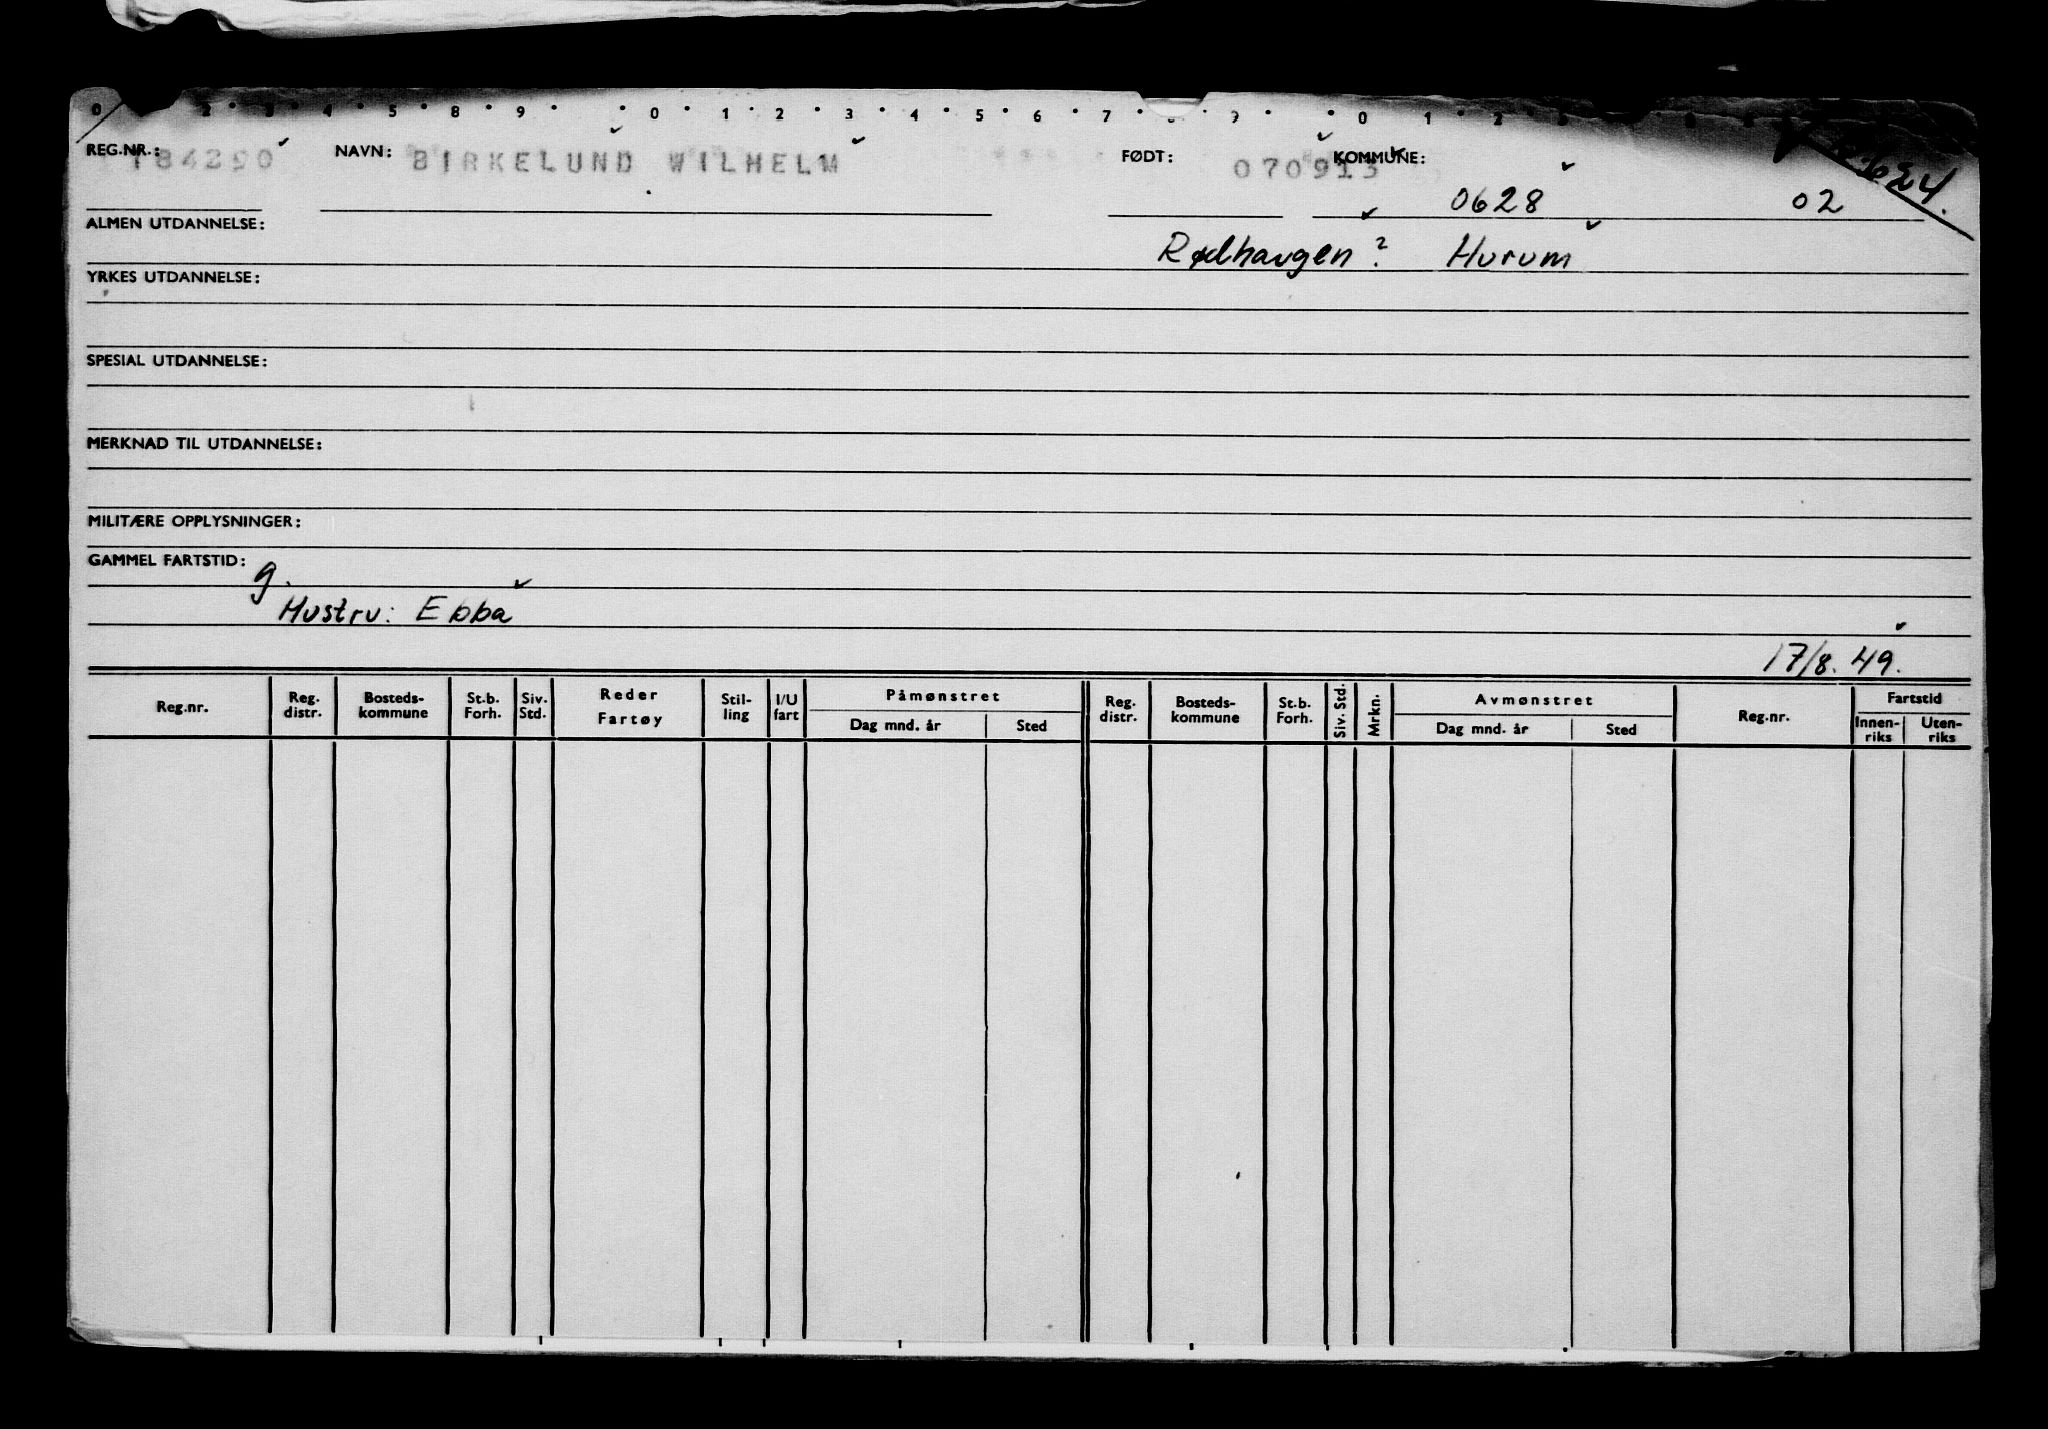 0 2 3 4 5 8 9 0 1 2 3 4 5 6 7 8 9 0 1 2
REG.NR.: 184290 NAVN: BIRKELUND WILHELM FØDT: 070913 KOMMUNE:
0628 02
ALMEN UTDANNELSE: Rødhaugen? Hurum
YRKES UTDANNELSE:
SPESIAL UTDANNELSE:
MERKNAD TIL UTDANNELSE:
MILITÆRE OPPLYSNINGER:
GAMMEL FARTSTID:
g.
Hustru: Ebba
17/8. 49.
Reg.nr. Reg. distr. Bosteds-kommune St.b. Forh. Siv. Std. Reder Fartøy Stil-ling I/U fart Påmønstret Dag mnd. år Sted Reg. distr. Bosteds-kommune St.b. Forh. Siv. Std. Mrkn. Avmønstret Dag mnd. år Sted Reg.nr. Fartstid Innen-riks Uten-riks